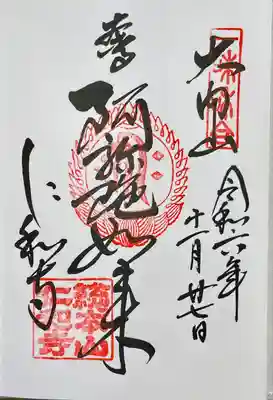 大内山
令和六年
十一月廿七日
奉
阿弥陀如来
仁和寺
総本山
仁和寺